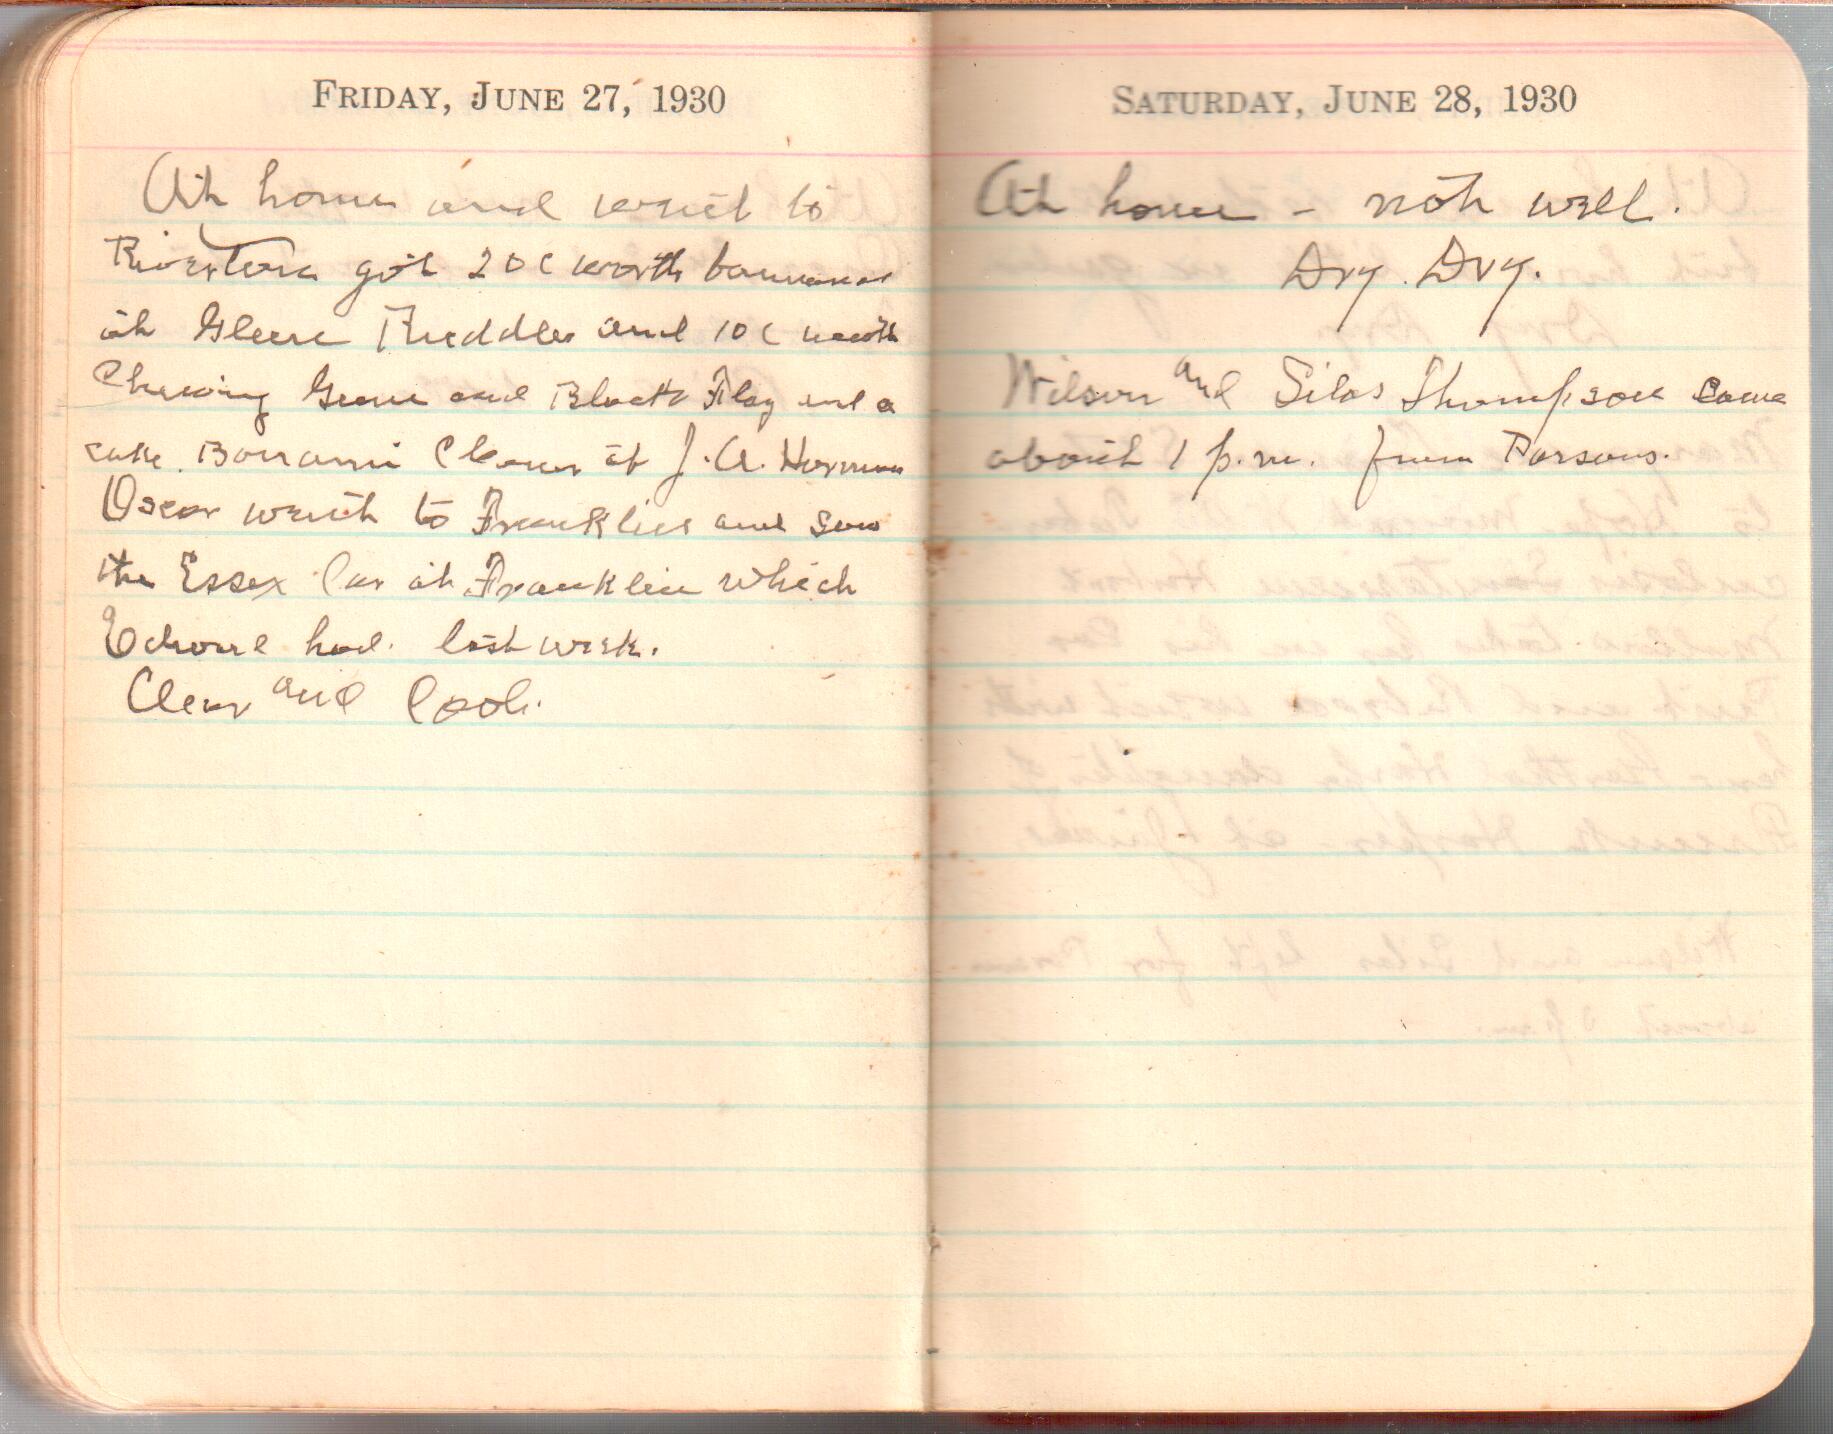 FRIDAY, JUNE 27, 1930
At home and went to
Riverton got 20c worth bananas
at Glenn Ruddles and 10c worth
Chewing Gum and Black Flag and a
cake Bonami at J. A. Harman
Oscar went to Franklin and saw
the Essex Car at Franklin which
had last week.
Clear and Cool.
SATURDAY, JUNE 28, 1930
At home - not well.
Dry. Dry.
Wilson and Silas Thompson came
about 1 p.m. from Parsons.